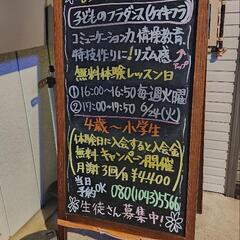 子どものフラダンス(ケイキフラ)
コミュニケーション力、情操教育、
特技作りに!リズム感
アップ
無料体験レッスン日
①16:00~16:50 毎週火曜
②17:00~17:50 6/24(火)
4歳~小学生
体験日に入会すると入会金
無料キャンペーン開催
月謝3回/¥4,400
当日
予約OK 080(1043)5566
生徒さん募集中!